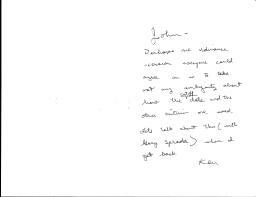 John -
Perhaps one
version everyone could
agree on is to take
out any ambiguity about
how the date and the
other criteria are used
Let's talk about this (with
Mary Spreads) when I
get back
Ken